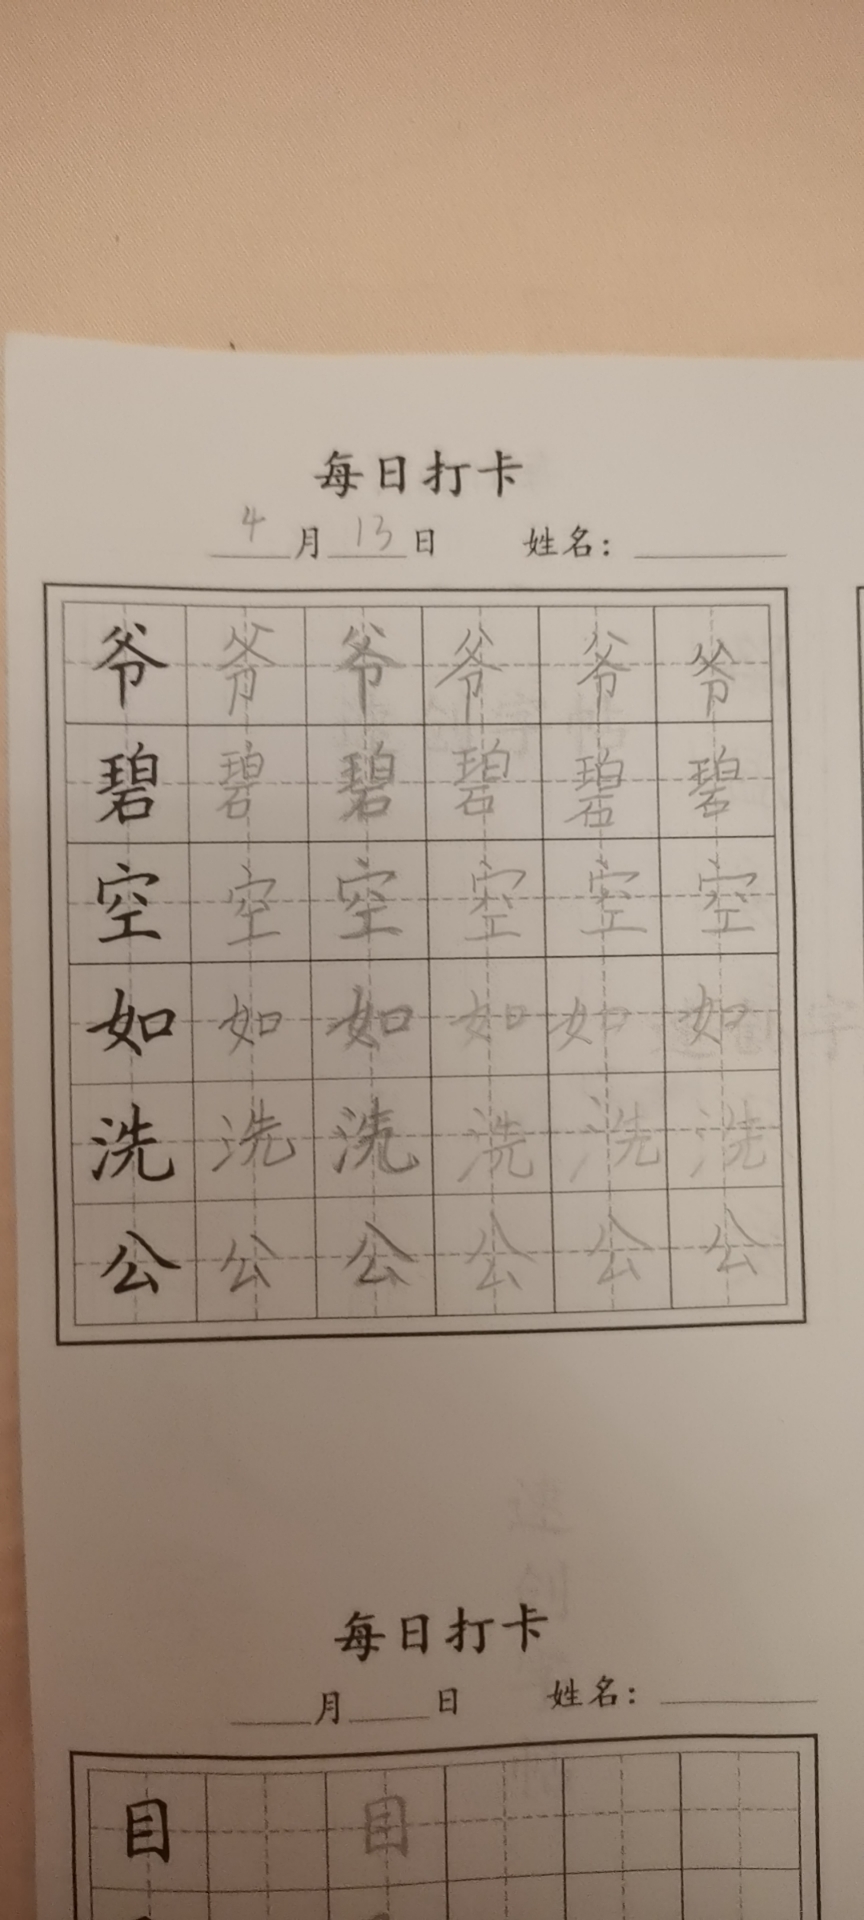 每日打卡
4月13日 姓名：
爷爷爷爷爷爷
碧碧碧碧碧碧
空空空空空空
如如如如如如
洗洗洗洗洗洗
公公公公公公
每日打卡
月 日 姓名：
目 目